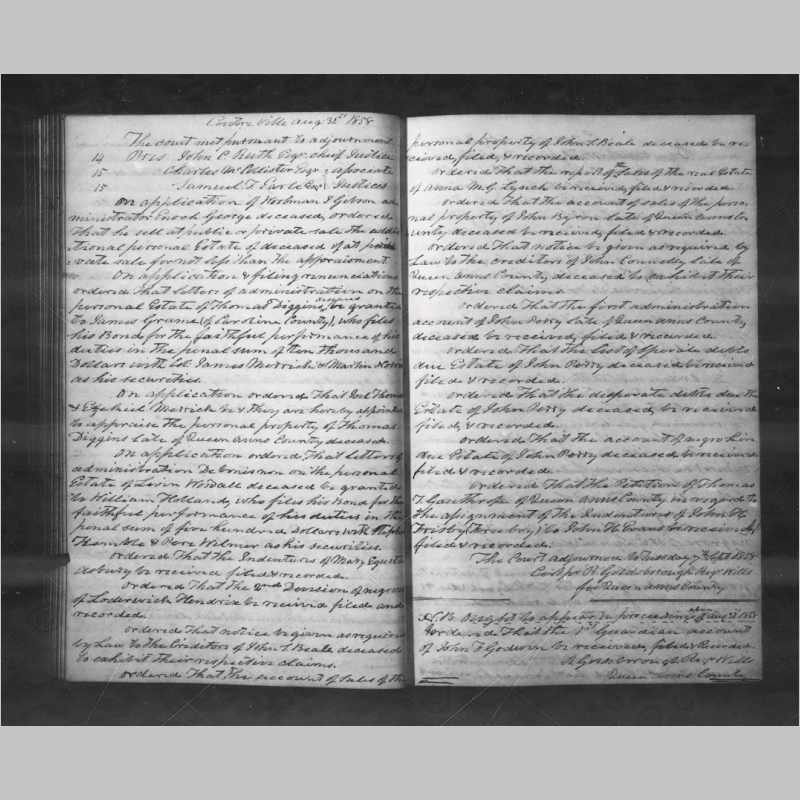 Centre Ville Aug 31st 1858
The court met pursuant to adjournment
14 Pres John C Ruth Esqr chief Justice
15 Charles McCollister Esqr associate
15 Samuel T Earle Esqr Justices
On application of Woolman J Gibson ad
ministrator Enoch George deceased, ordered
that he sell at public or private sale the addi
tional personal Estate of deceased if at pri
vate sale for not less than the appraisment
On application & filing renunciations
ordered that letters of administration on the
personal Estate of Thomas Diggins deceased be granted
to James Grame (of Caroline County), who files
his Bond for the faithful performance of his
duties in the penal sum of ten thousand
Dollars with Col James Merrick & Martin
as his securities.
On application ordered that Thomas
& Ezekiel Merrick be & they are hereby appointed
to appraise the personal property of Thomas
Diggins late of Queen Anns County deceased.
On application ordered that letters of
administration De bonis non on the personal
Estate of Levin Woodall deceased be granted
to William Holland, who files his Bond for the
faithful performance of his duties in the
penal sum of five hundred Dollars with
Hemble & Pere Wilmer as his securities.
ordered that the Indentures of Mary
Asbury be received filed & recorded.
ordered that the 2nd Division of negroes
of Loderwick Hendrix be received filed and
recorded.
ordered that notice be given as required
by Law to the Creditors of John T Beale deceased
to exhibit their respective claims.
ordered that the account of sales of the
personal property of John T Beale deceased be re
ceived, filed, & recorded.
ordered that the report of Sales of the real Estate
of Anna M G Lynch be received, filed & recorded
ordered that the account of sales of the perso
nal property of John Byron late of Queen Anns Co
unty deceased be received filed & recorded.
ordered that notice be given as required by
Law to the creditors of John Connolly late of
Queen Anns County deceased to exhibit their
respective claims.
ordered that the first administration
account of John Perry late of Queen Anns County
deceased be received, filed & recorded.
ordered that the list of sperate debts
due Estate of John Perry deceased be received
filed & recorded.
ordered that the desperate debts due the
Estate of John Perry deceased be received
filed, & recorded.
ordered that the account of negro
due Estate of John Perry deceased be received
filed & recorded.
ordered that the Petition of Thomas
T. Gawthrop of Queen Anns County in regard to
the assignment of the Indentures of John H
Frisby (Free boy) to John H Evans be received
filed & recorded.
The Court adjourned to Tuesday 7th Sept 1858
Cert pr R Goldsborough Regr Wills
for Queen Anns County
N.B. Ought to appear in proceedings of Aug 31st 1858
ordered that the 1st Guardian account
of John T Godwin be received, filed & Recorded.
R Goldsborough Regr Wills
Queen Anns County